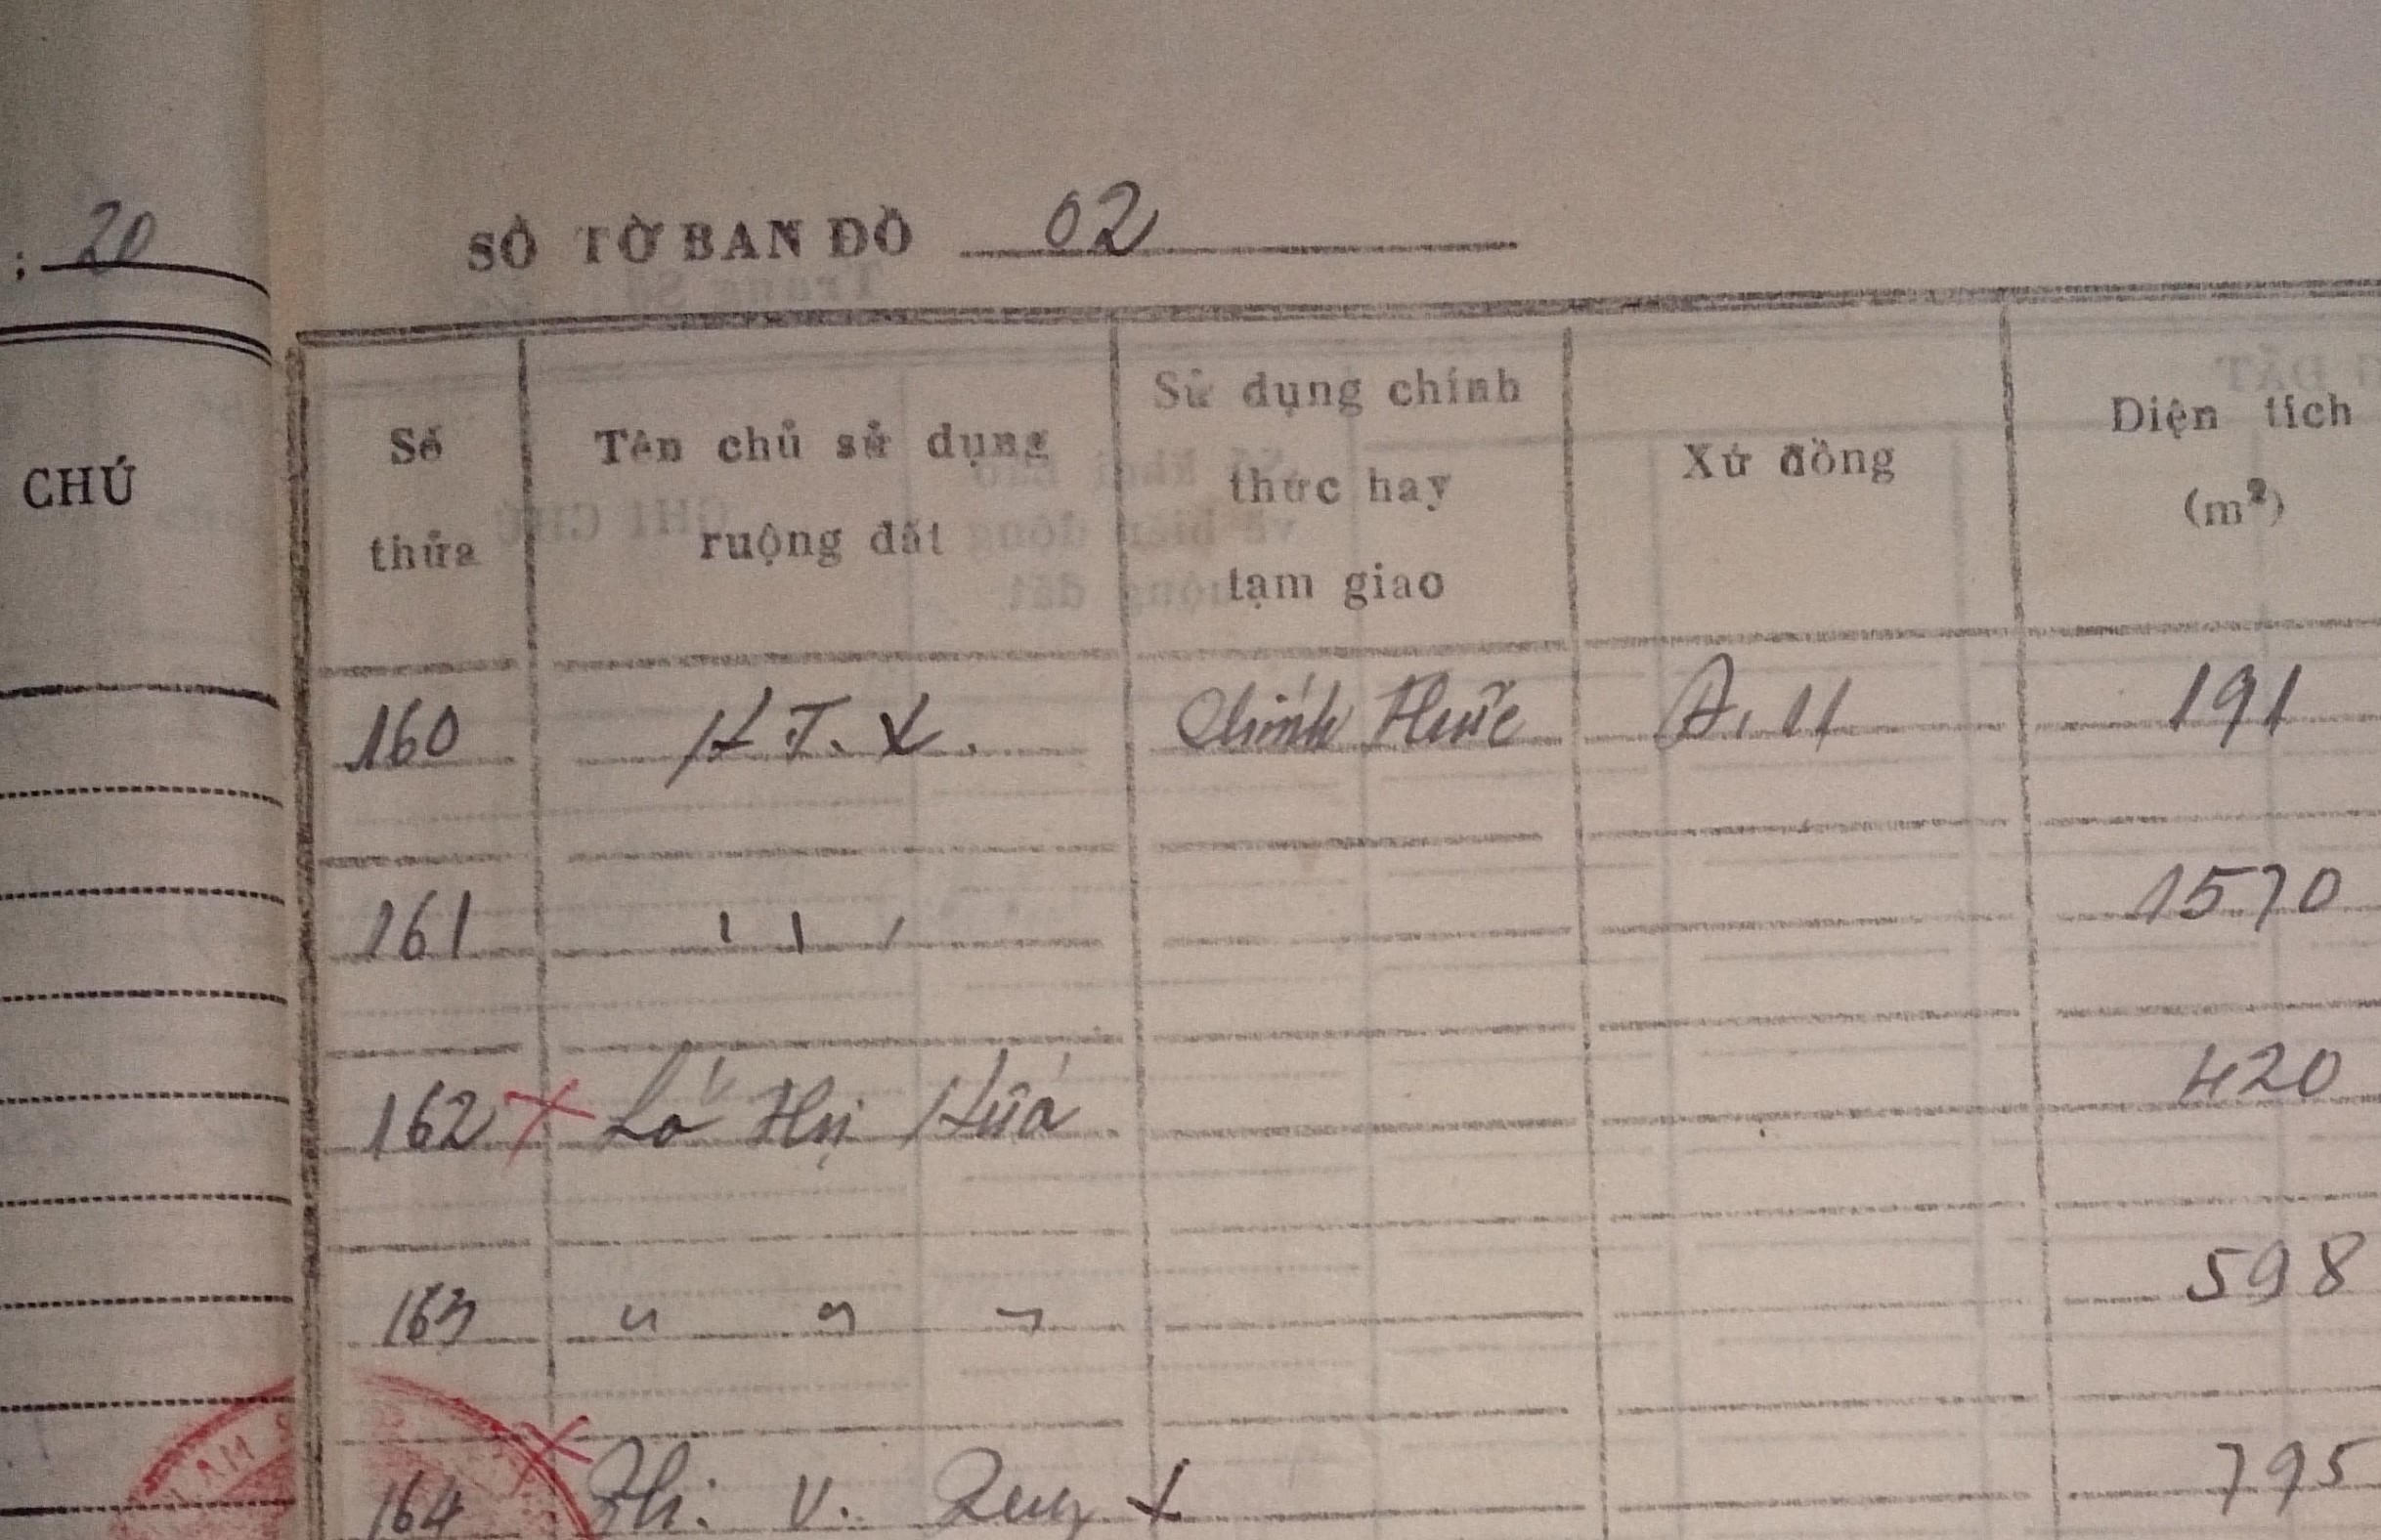 : 20
SỐ TỜ BẢN ĐỒ 02
CHÚ
Số thửa
Tên chủ sử dụng ruộng đất
Sử dụng chính thức hay tạm giao
Xứ đồng
Diện tích (m²)
160 H.T.X. Chính thức Đ. 11 191
161 ' ' ' 1570
162 × Lò Thị Hứa 420
163 " " " 598
164 × Phi. V. Quy 795